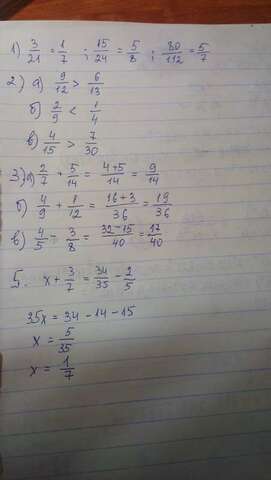 1) 3/21 = 1/7 ; 15/24 = 5/8 ; 80/112 = 5/7
2) а) 9/12 > 6/13
б) 2/9 < 1/4
в) 4/15 > 7/30
3) а) 2/7 + 5/14 = 4+5/14 = 9/14
б) 4/9 + 1/12 = 16+3/36 = 19/36
в) 4/5 - 3/8 = 32-15/40 = 17/40
5. x + 3/7 = 34/35 - 2/5
35x = 34 - 14 - 15
x = 5/35
x = 1/7